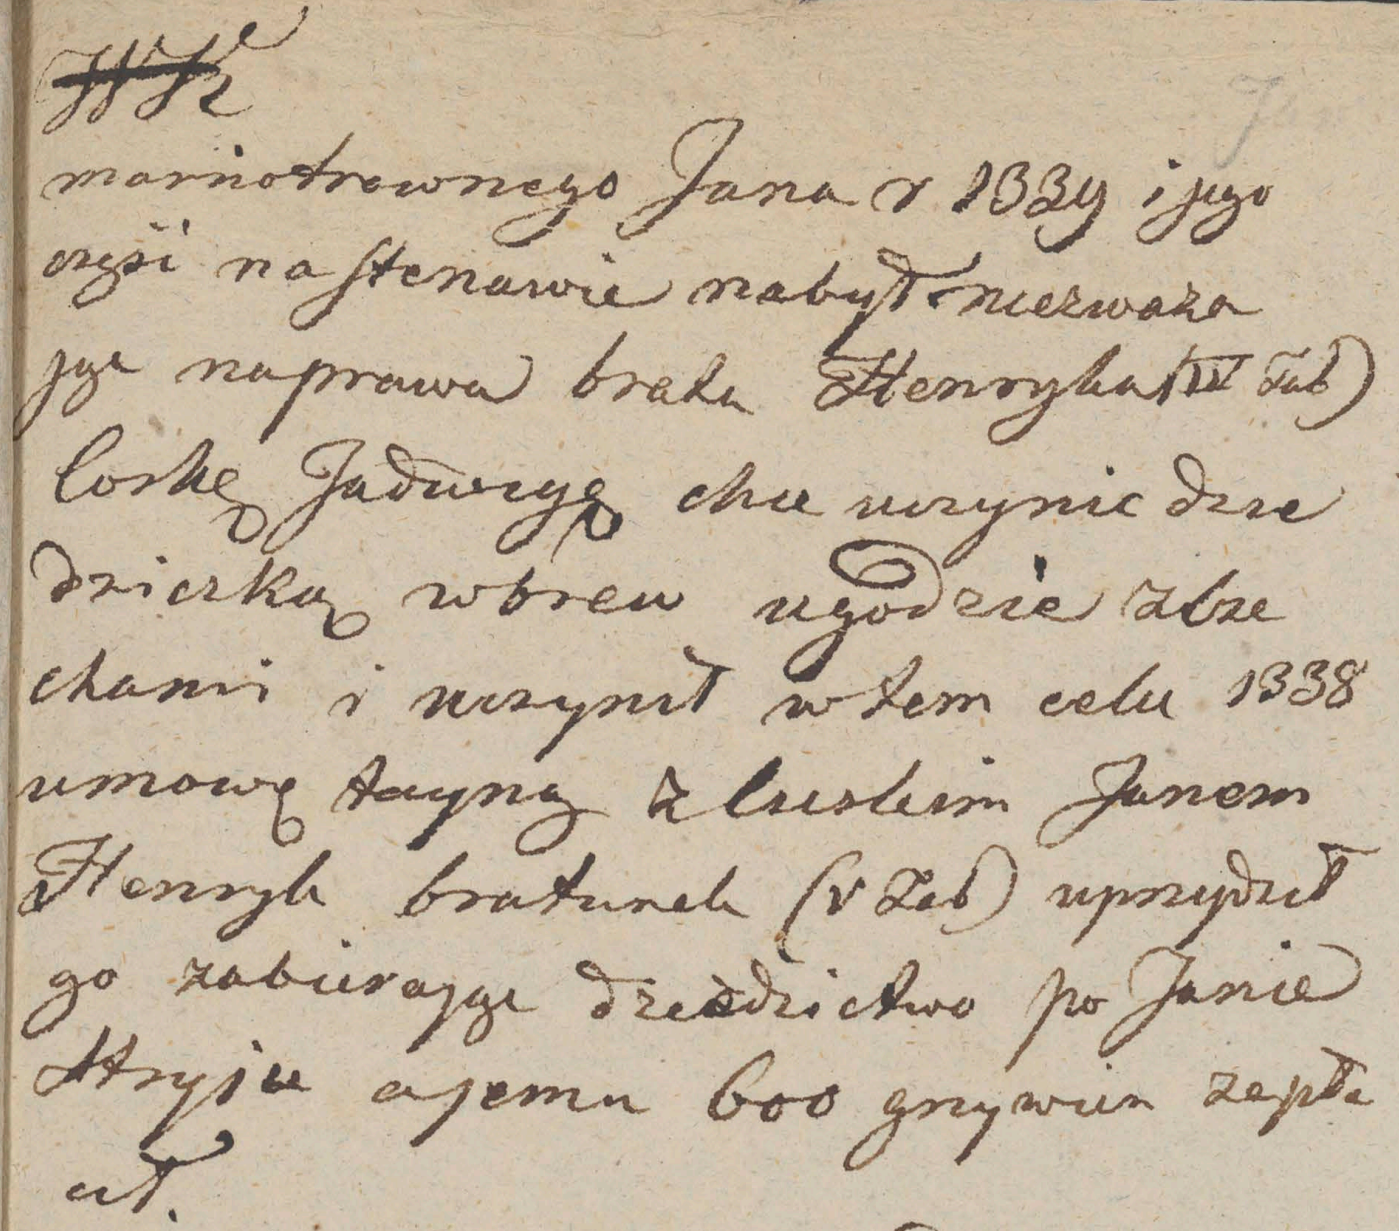 marnotrawnego Jana r 1339 i jego
części na stenawie nabył niezwaza
jąc naprawa brata Henryka (III Zab)
Corkę Jadwigę chce uczynic dzie
dziczką wbrew ugodzie zbze
chami i uczynił w tem celu 1338
umowę tayną z luskim Janem
Henryk bratunek (V Zab) uprzydził
go zabierając dziedzictwo po Janie
Stryju a jemu 600 grzywien zapła
cił.